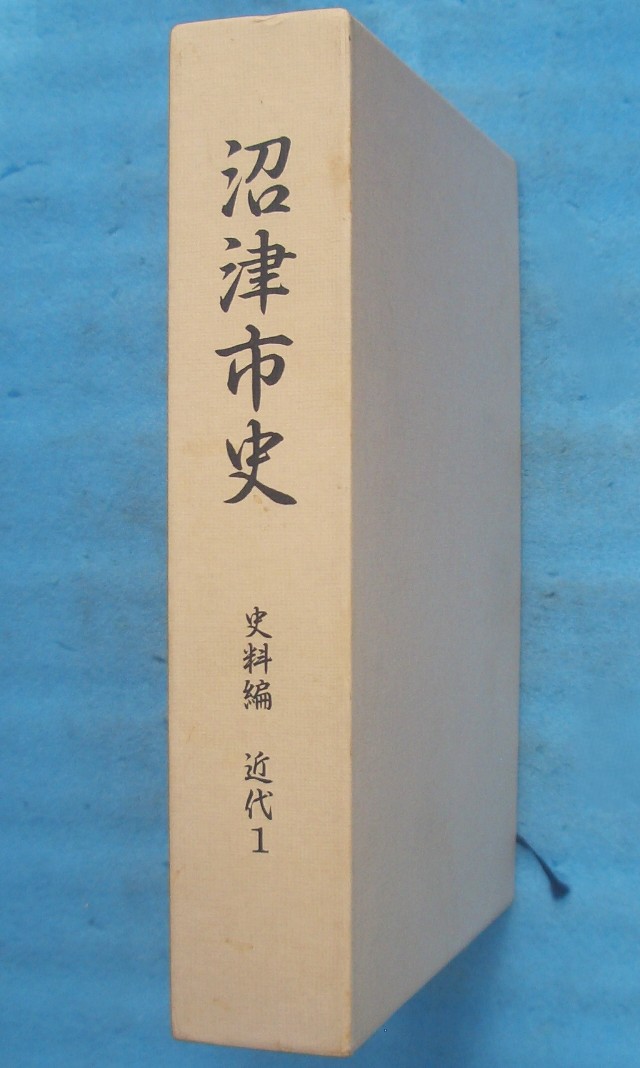 沼津市史
史料編 近代1